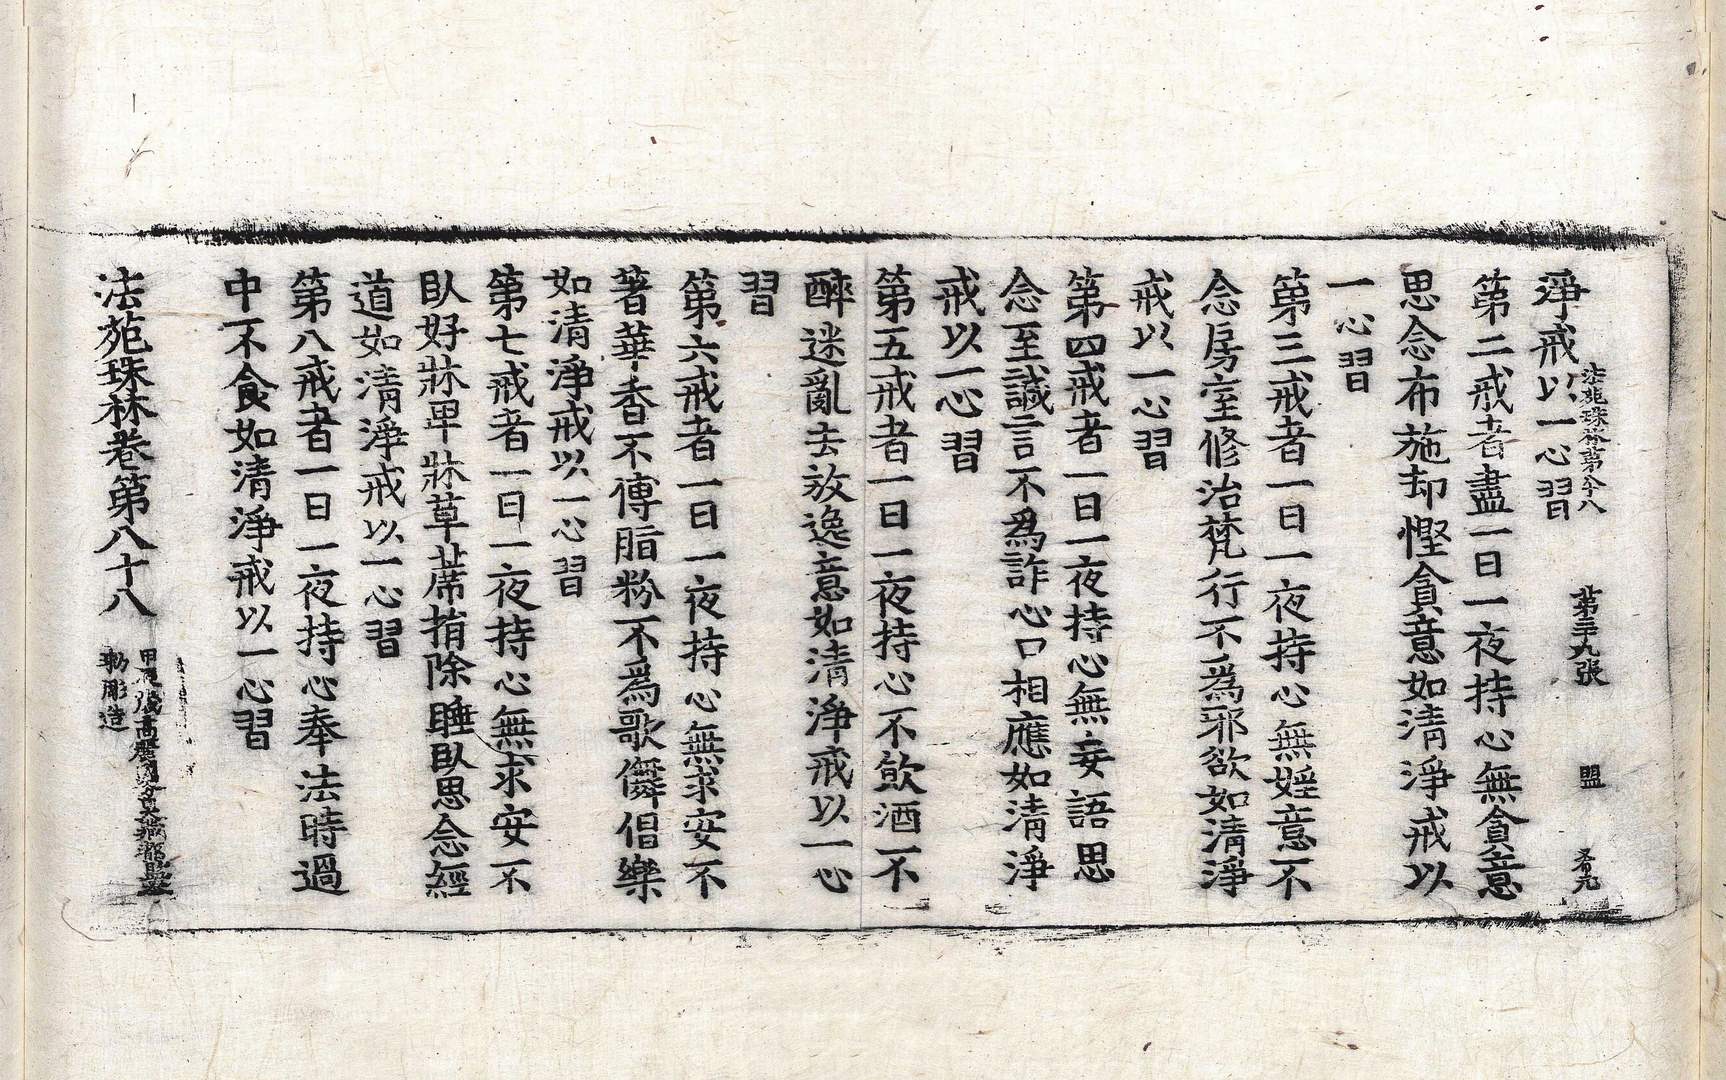 淨戒以一心習
法苑珠林第八十八　第三十九張　盟
第二戒者盡一日一夜持心無貪意
思念布施却慳貪意如清淨戒以
一心習
第三戒者一日一夜持心無婬意不
念房室修治梵行不爲邪欲如清淨
戒以一心習
第四戒者一日一夜持心無妄語思
念至誠言不爲詐心口相應如清淨
戒以一心習
第五戒者一日一夜持心不飲酒不
醉迷亂去放逸意如清淨戒以一心
習
第六戒者一日一夜持心無求安不
著華香不傅脂粉不爲歌儛倡樂
如清淨戒以一心習
第七戒者一日一夜持心無求安不
卧好牀卑牀草蓆捎除睡卧思念經
道如清淨戒以一心習
第八戒者一日一夜持心奉法時過
中不食如清淨戒以一心習
法苑珠林卷第八十八
甲辰歲高麗國分司大藏都監奉
勑彫造